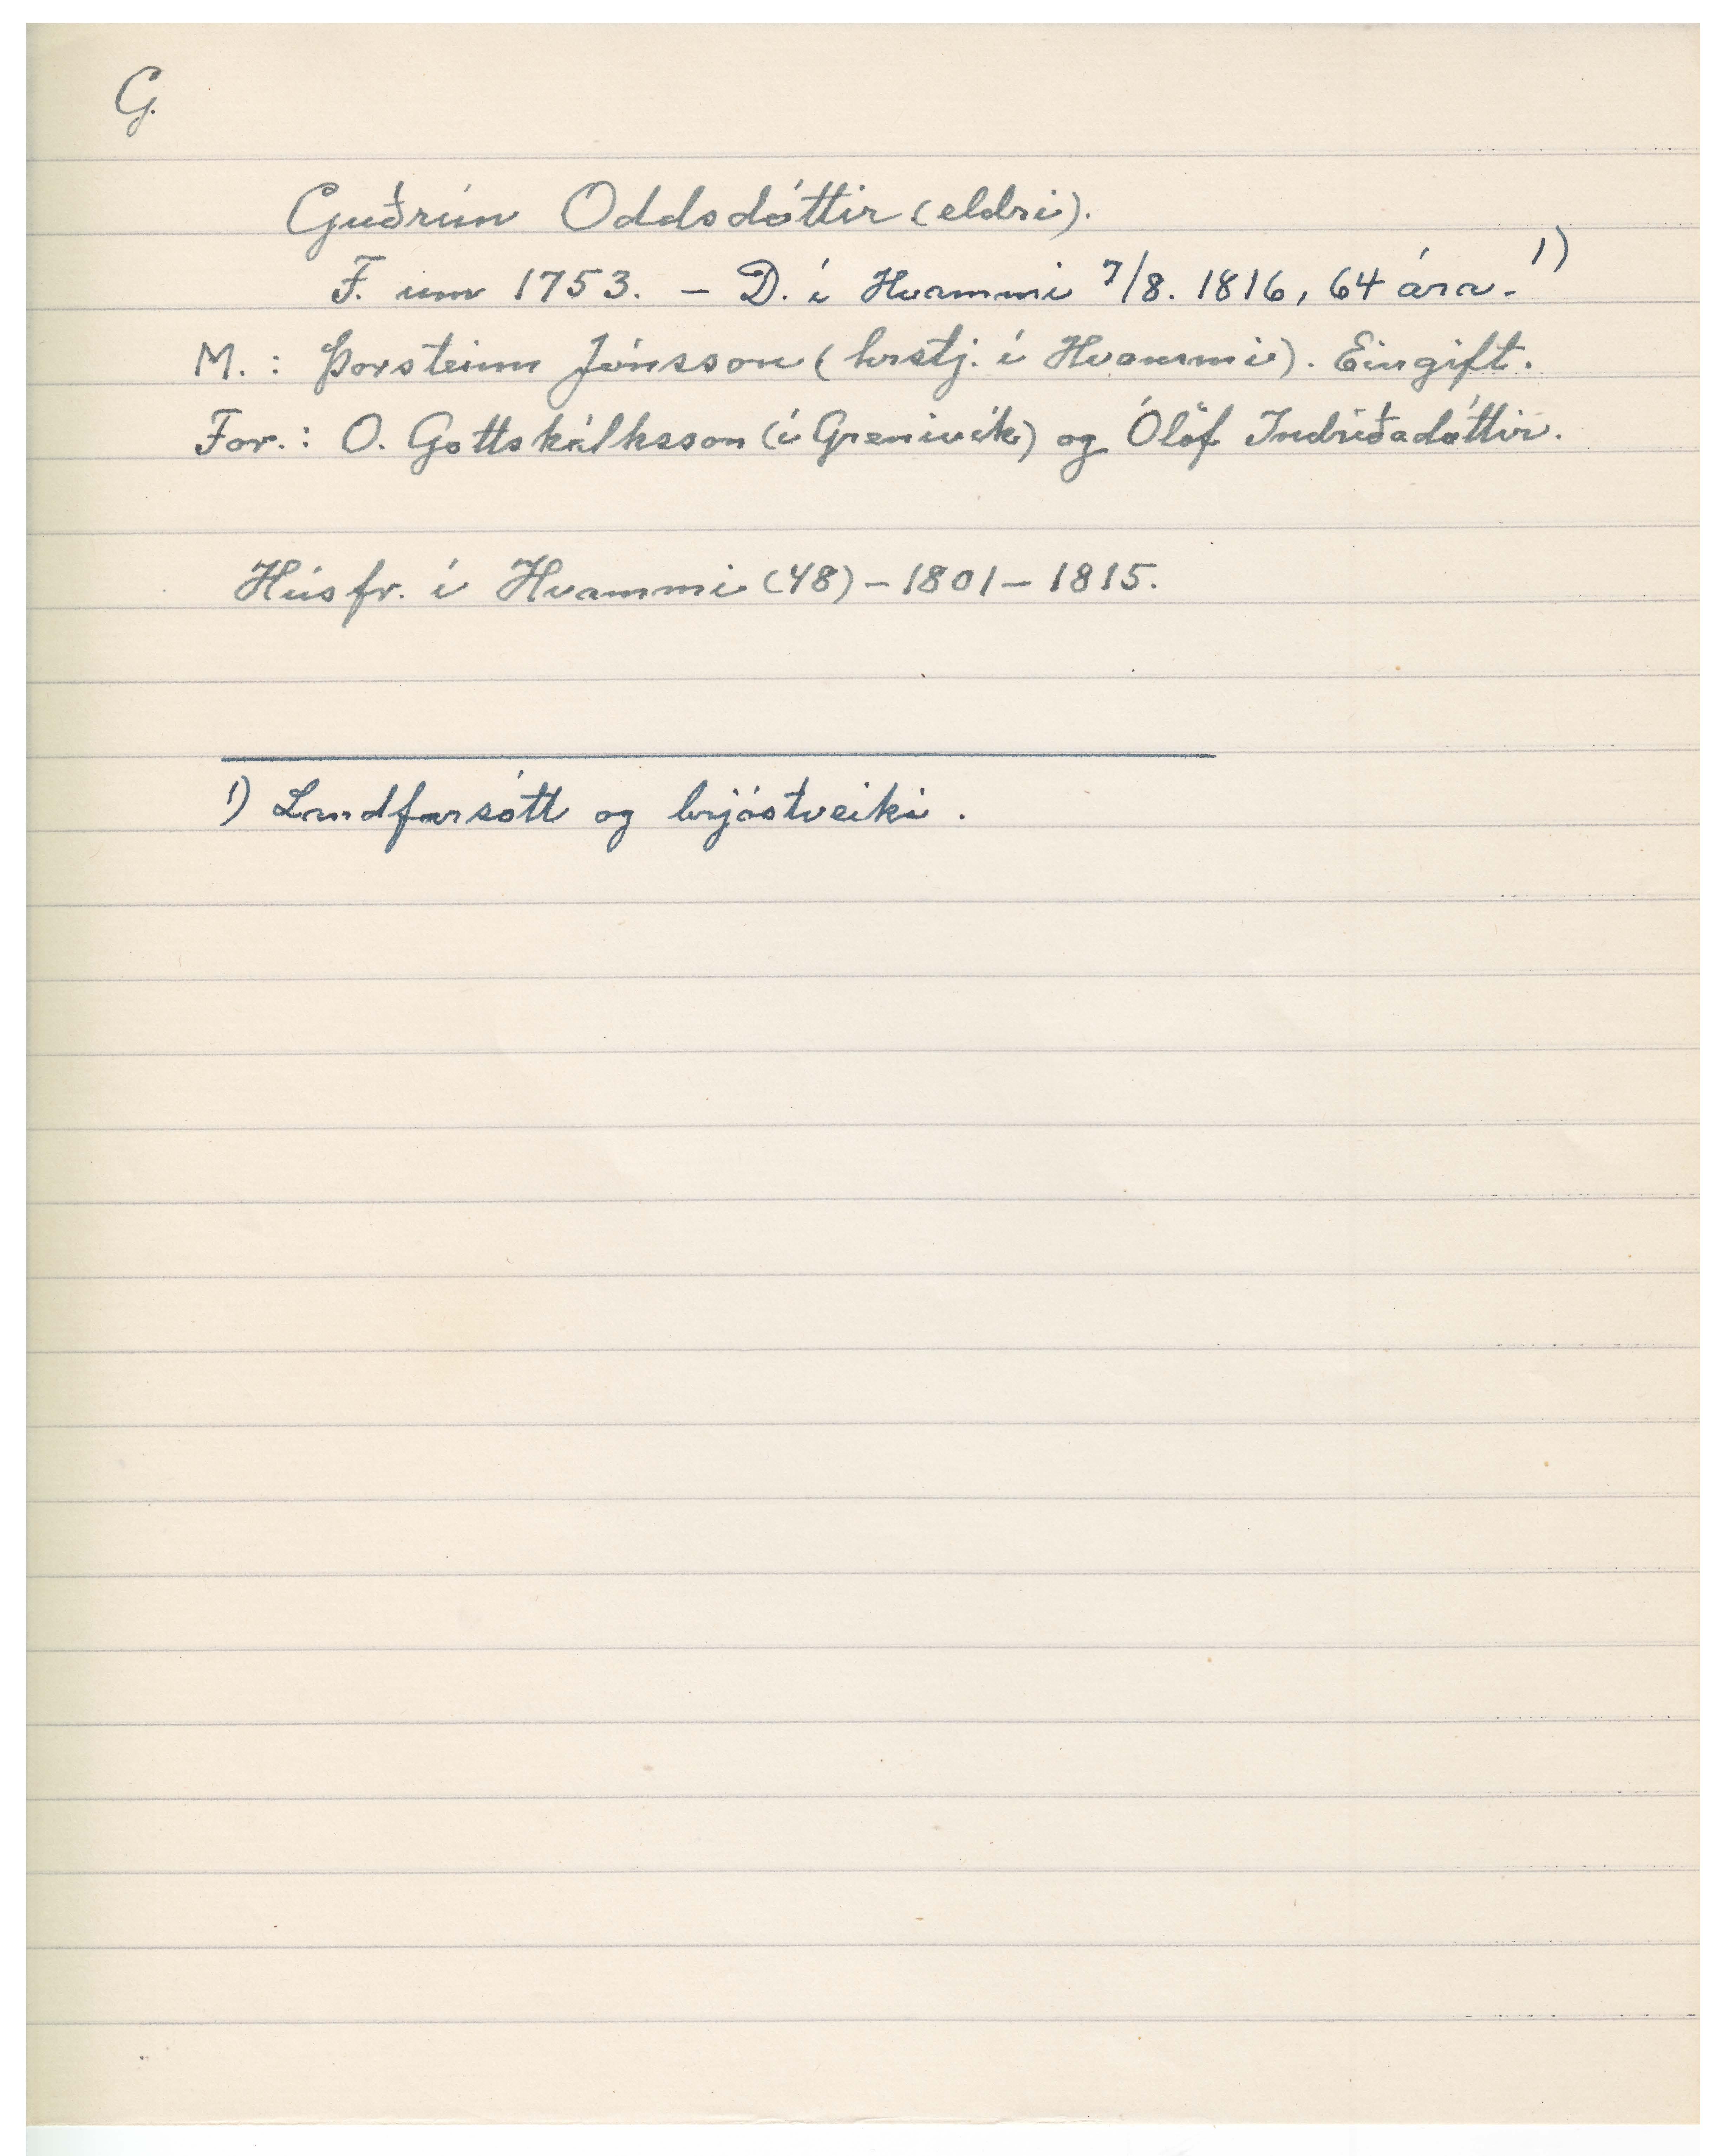 G.
Guðrún Oddsdóttir (eldri).
F. um 1753. – D. í Hvammi 7/8. 1816, 64 ára. 1)
M.: Þorsteinn Jónsson (hrstj. í Hvammi). Eingift.
For.: O. Gottskálksson (í Grenivík) og Ólöf Indriðadóttir.
Húsfr. í Hvammi (48) – 1801 – 1815.
1) Landfarsótt og brjóstveiki.